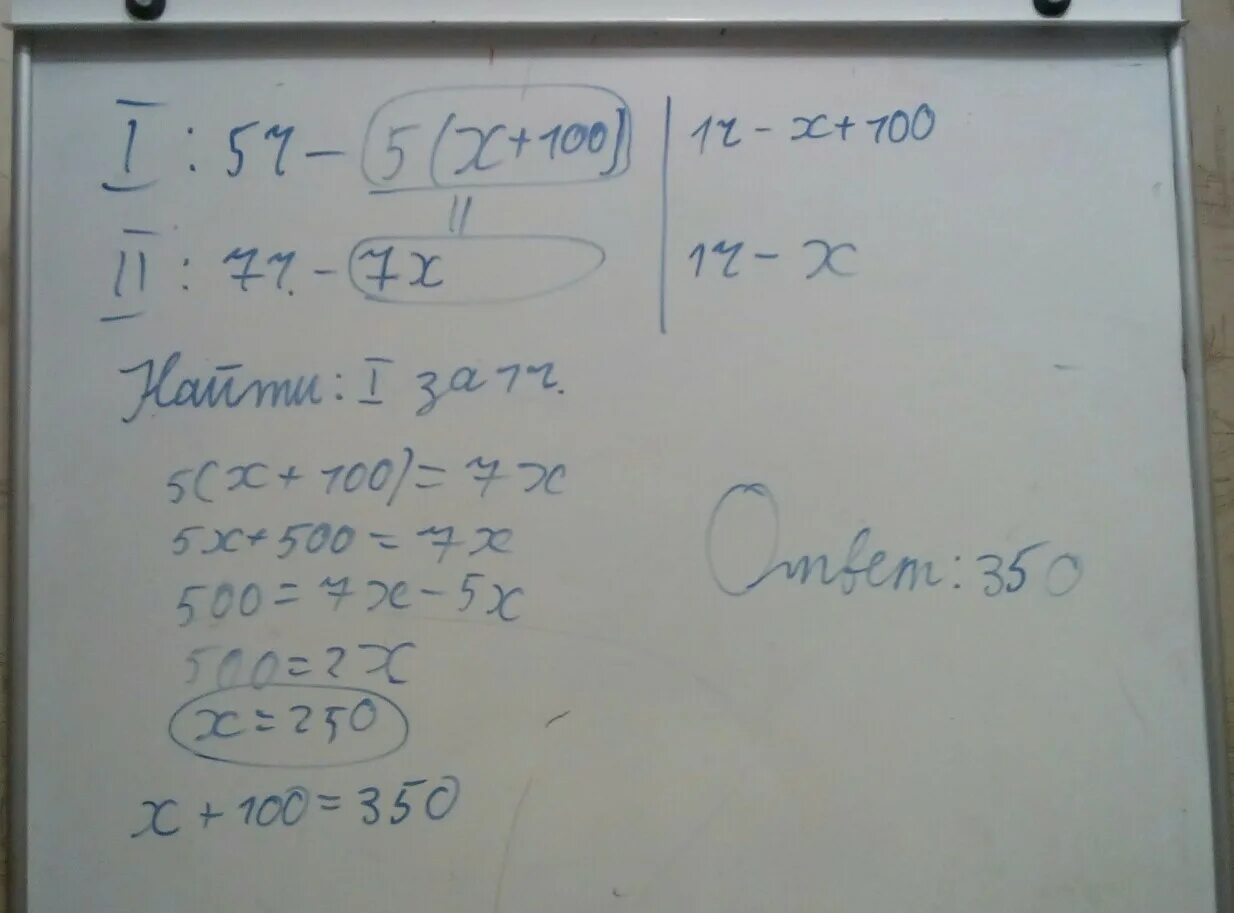 I : 5ч - 5(x+100) | 1ч - x+100
||
II : 7ч. - 7x | 1ч - x
Найти: I за 1ч.
5(x + 100) = 7x
5x + 500 = 7x
500 = 7x - 5x
500 = 2x
x = 250
x + 100 = 350
Ответ: 350